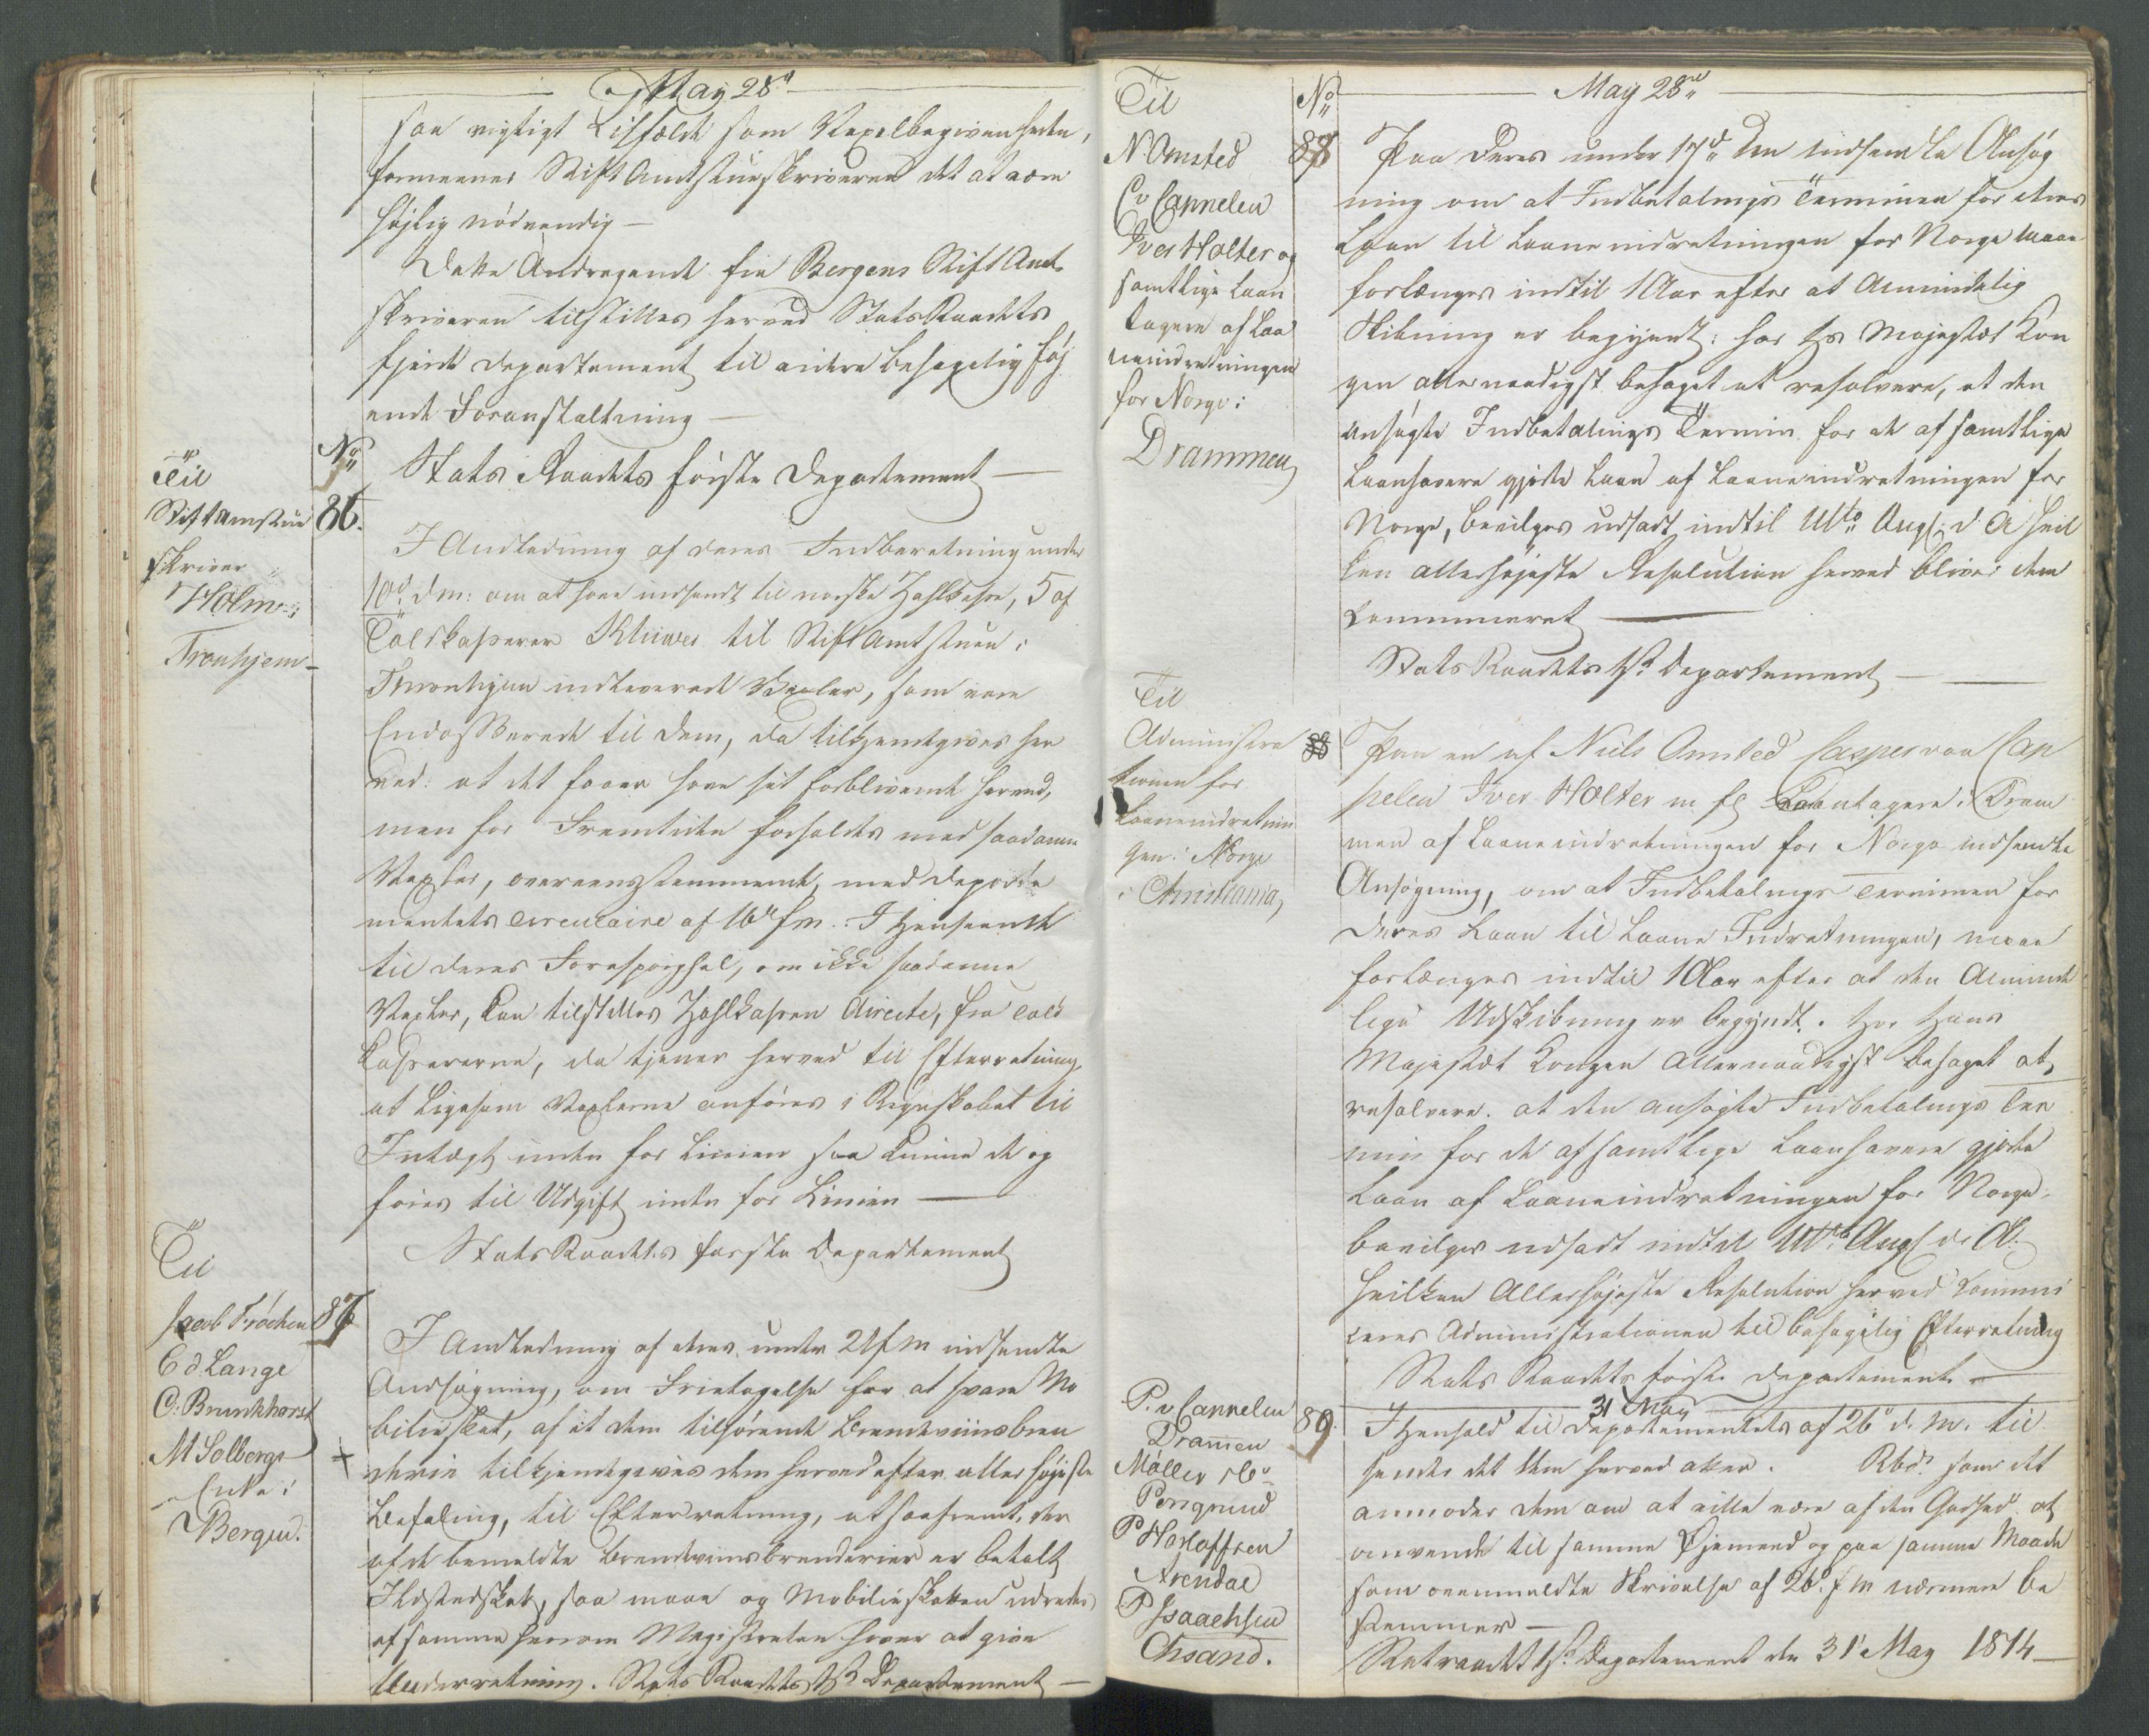 May 28d
saa vigtigt Tilfælde som Vexelbegivenheder,
formeener Stiftamtstueskriveren det at være
højlig nødvendig —
Dette Andragende fra Bergens Stift Amt
skriveren tilstilles herved StatsRaadets
fjerde Departement til videre behagelig føj
ende Foranstaltning —
Stats Raadets første Departement —
Til
Stiftamtstue
skriver
Holm i
Tronhjem —
No
86.
I Anledning af Deres Indberetning under
10d dm: om at have indsendt til norske Zahlkasse, 5 af
Toldkasserer Klüwer til Stift Amtstuen i
Thronhjem indleverede Vexler, som vare
Endosserede til Dem, da tilkjendegives her
ved: at det faaer have sit Forblivende herved,
men for Fremtiden forholdes med saadanne
Vexler, overeensstemmende med Departe
mentets Circulaire af 16d f.m. I Henseende
til Deres Forespørgsel, om ikke saadanne
Vexler, kan tilstilles Zahlkassen directe, fra Told
kassererne, da tjener herved til Efterretning,
at ligesom Vexlerne anføres i Regnskabet til
Indtægt inden for Linien saa kunne de og
føres til Udgift inden for Linien —
StatsRaadets første Departement
Til
Jacob Fröchen
E d Lange
C: Brunkhorst
M Solbergs
Enke i
Bergen.
87
+
I Anledning af Deres under 21 f m indsendte
Andsøgning, om Fritagelse for at svare Mo
bilieskat, af et dem tilhørende Brendeviinsbren
derie tilkjendegives dem herved efter allerhøjeste
Befaling, til Efterretning, at saafremt, der
af de bemeldte Brendeviinsbrenderier er betalt
Ildstedskat, saa maae og Mobilieskatten udredes
af samme hvorom Magistraten haver at give
Underretning. Stats Raadets 1ste Departement —
Til
N. Omsted
C v Cappelen
Iver Holter og
samtlige Laan
tagere af Laa
neindretningen
for Norge i
Drammen
No
May 28de
88
Paa Deres under 17d dm indsendte Ansøg
ning om at Indbetalings Terminen for deres
Laan til Laaneindretningen for Norge maae
forlænges indtil 1 Aar efter at Almindelig
Skibning er begyndt: har Hs Majestæt Kon
gen allernaadigst behaget at resolvere, at den
ansøgte Indbetalings Termin for de af samtlige
Laanhavere gjorte Laan af Laaneindretningen for
Norge, bevilges udsadt indtil Ulto Aug: d A hvil
ken allerhøjeste Resolution herved bliver dem
Communiceret —
StatsRaadets 1ste Departement —
Til
Administra
tionen for
Laaneindretnin
gen i Norge
i Christiania,
88
Paa en af Niels Omsted Casper von Cap
pelen Iver Holter m fl Laantagere i Dram
men af Laaneindretningen for Norge indsendte
Ansøgning, om at Indbetalings Terminen for
Deres Laan til Laane Indretningen, maae
forlænges indtil 1 Aar efter at den Alminde
lige Udskibning er begyndt. har Hans
Majestæt Kongen Allernaadigst behaget at
resolvere. at den ansøgte Indbetalings Ter
min for de af samtlige Laanhavere gjorte
Laan af Laaneindretningen for Norge,
bevilges udsadt indtil Ulto Aug d. A.
hvilken Allerhøjeste Resolution herved Commu
ceres Administrationen til behagelig Efterretning
Stats Raadets første Departement —
31 May
P. v Cappelen
Dramen
Møller & Co
Porsgrund
P Herloffsen
Arendal
P Isaachsen
Chsand.
89.
I Henhold til Departementets af 26d d. M. til
sendes det Dem herved atter . Rbd: som det
anmoder dem om at ville være af den Godhed at
anvende til samme Øjemeed og paa samme Maade
som ovenmeldte Skrivelse af 26. f m nærmere be
stemmer —
Statsraadets 1ste Departement den 31 May 1814 —